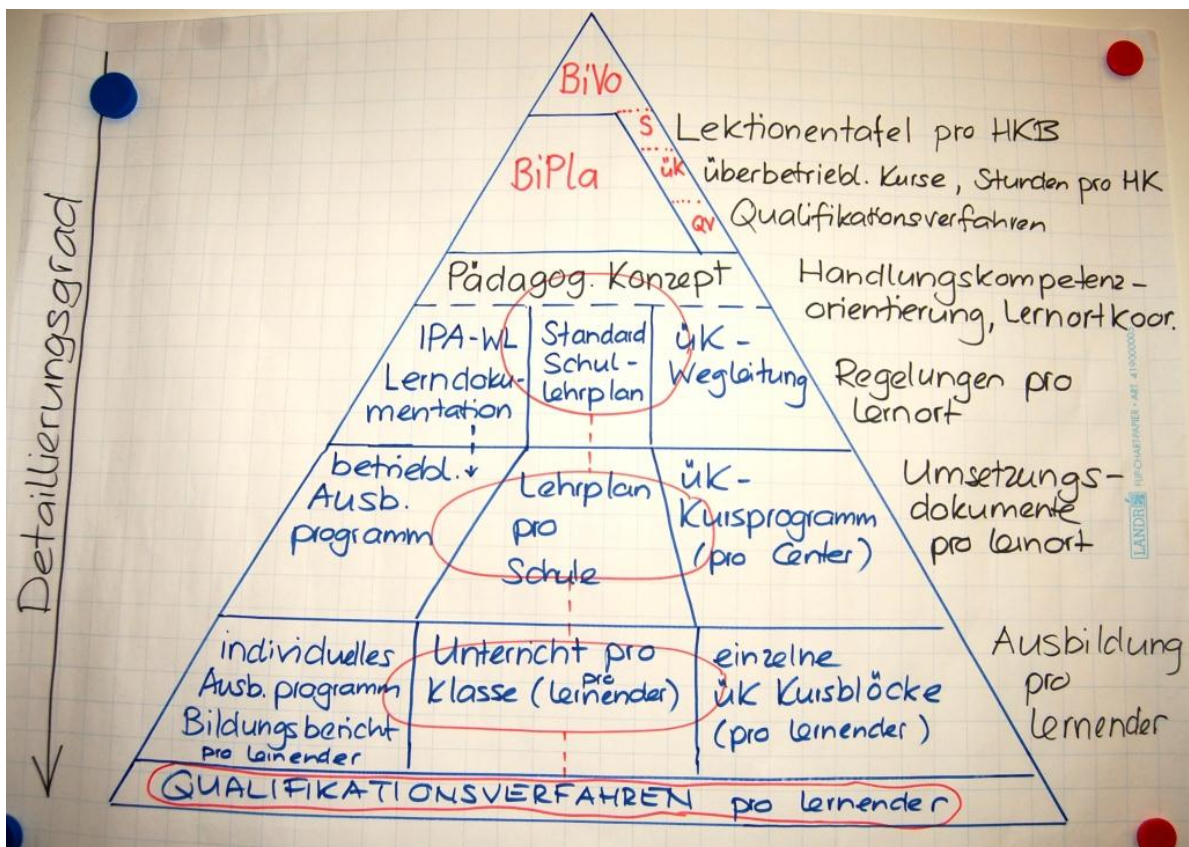 Detaillierungsgrad
BiVo
BiPla
S
üK
QV
Lektionentafel pro HKB
überbetriebl. Kurse, Stunden pro HK
Qualifikationsverfahren
Pädagog. Konzept
Handlungskompetenz-
orientierung, Lernortkoor.
IPA-WL
Lerndoku-
mentation
Standard
Schul-
lehrplan
üK-
Wegleitung
Regelungen pro
Lernort
betriebl.
Ausb.
programm
Lehrplan
pro
Schule
üK-
Kursprogramm
(pro Center)
Umsetzungs-
dokumente
pro Lernort
individuelles
Ausb.programm
Bildungsbericht
pro Lernender
Unterricht pro
Klasse (pro Lernender)
einzelne
üK Kursblöcke
(pro Lernender)
Ausbildung
pro
Lernender
QUALIFIKATIONSVERFAHREN pro Lernender
LANDRÉ FLIPCHARTPAPIER · ART.